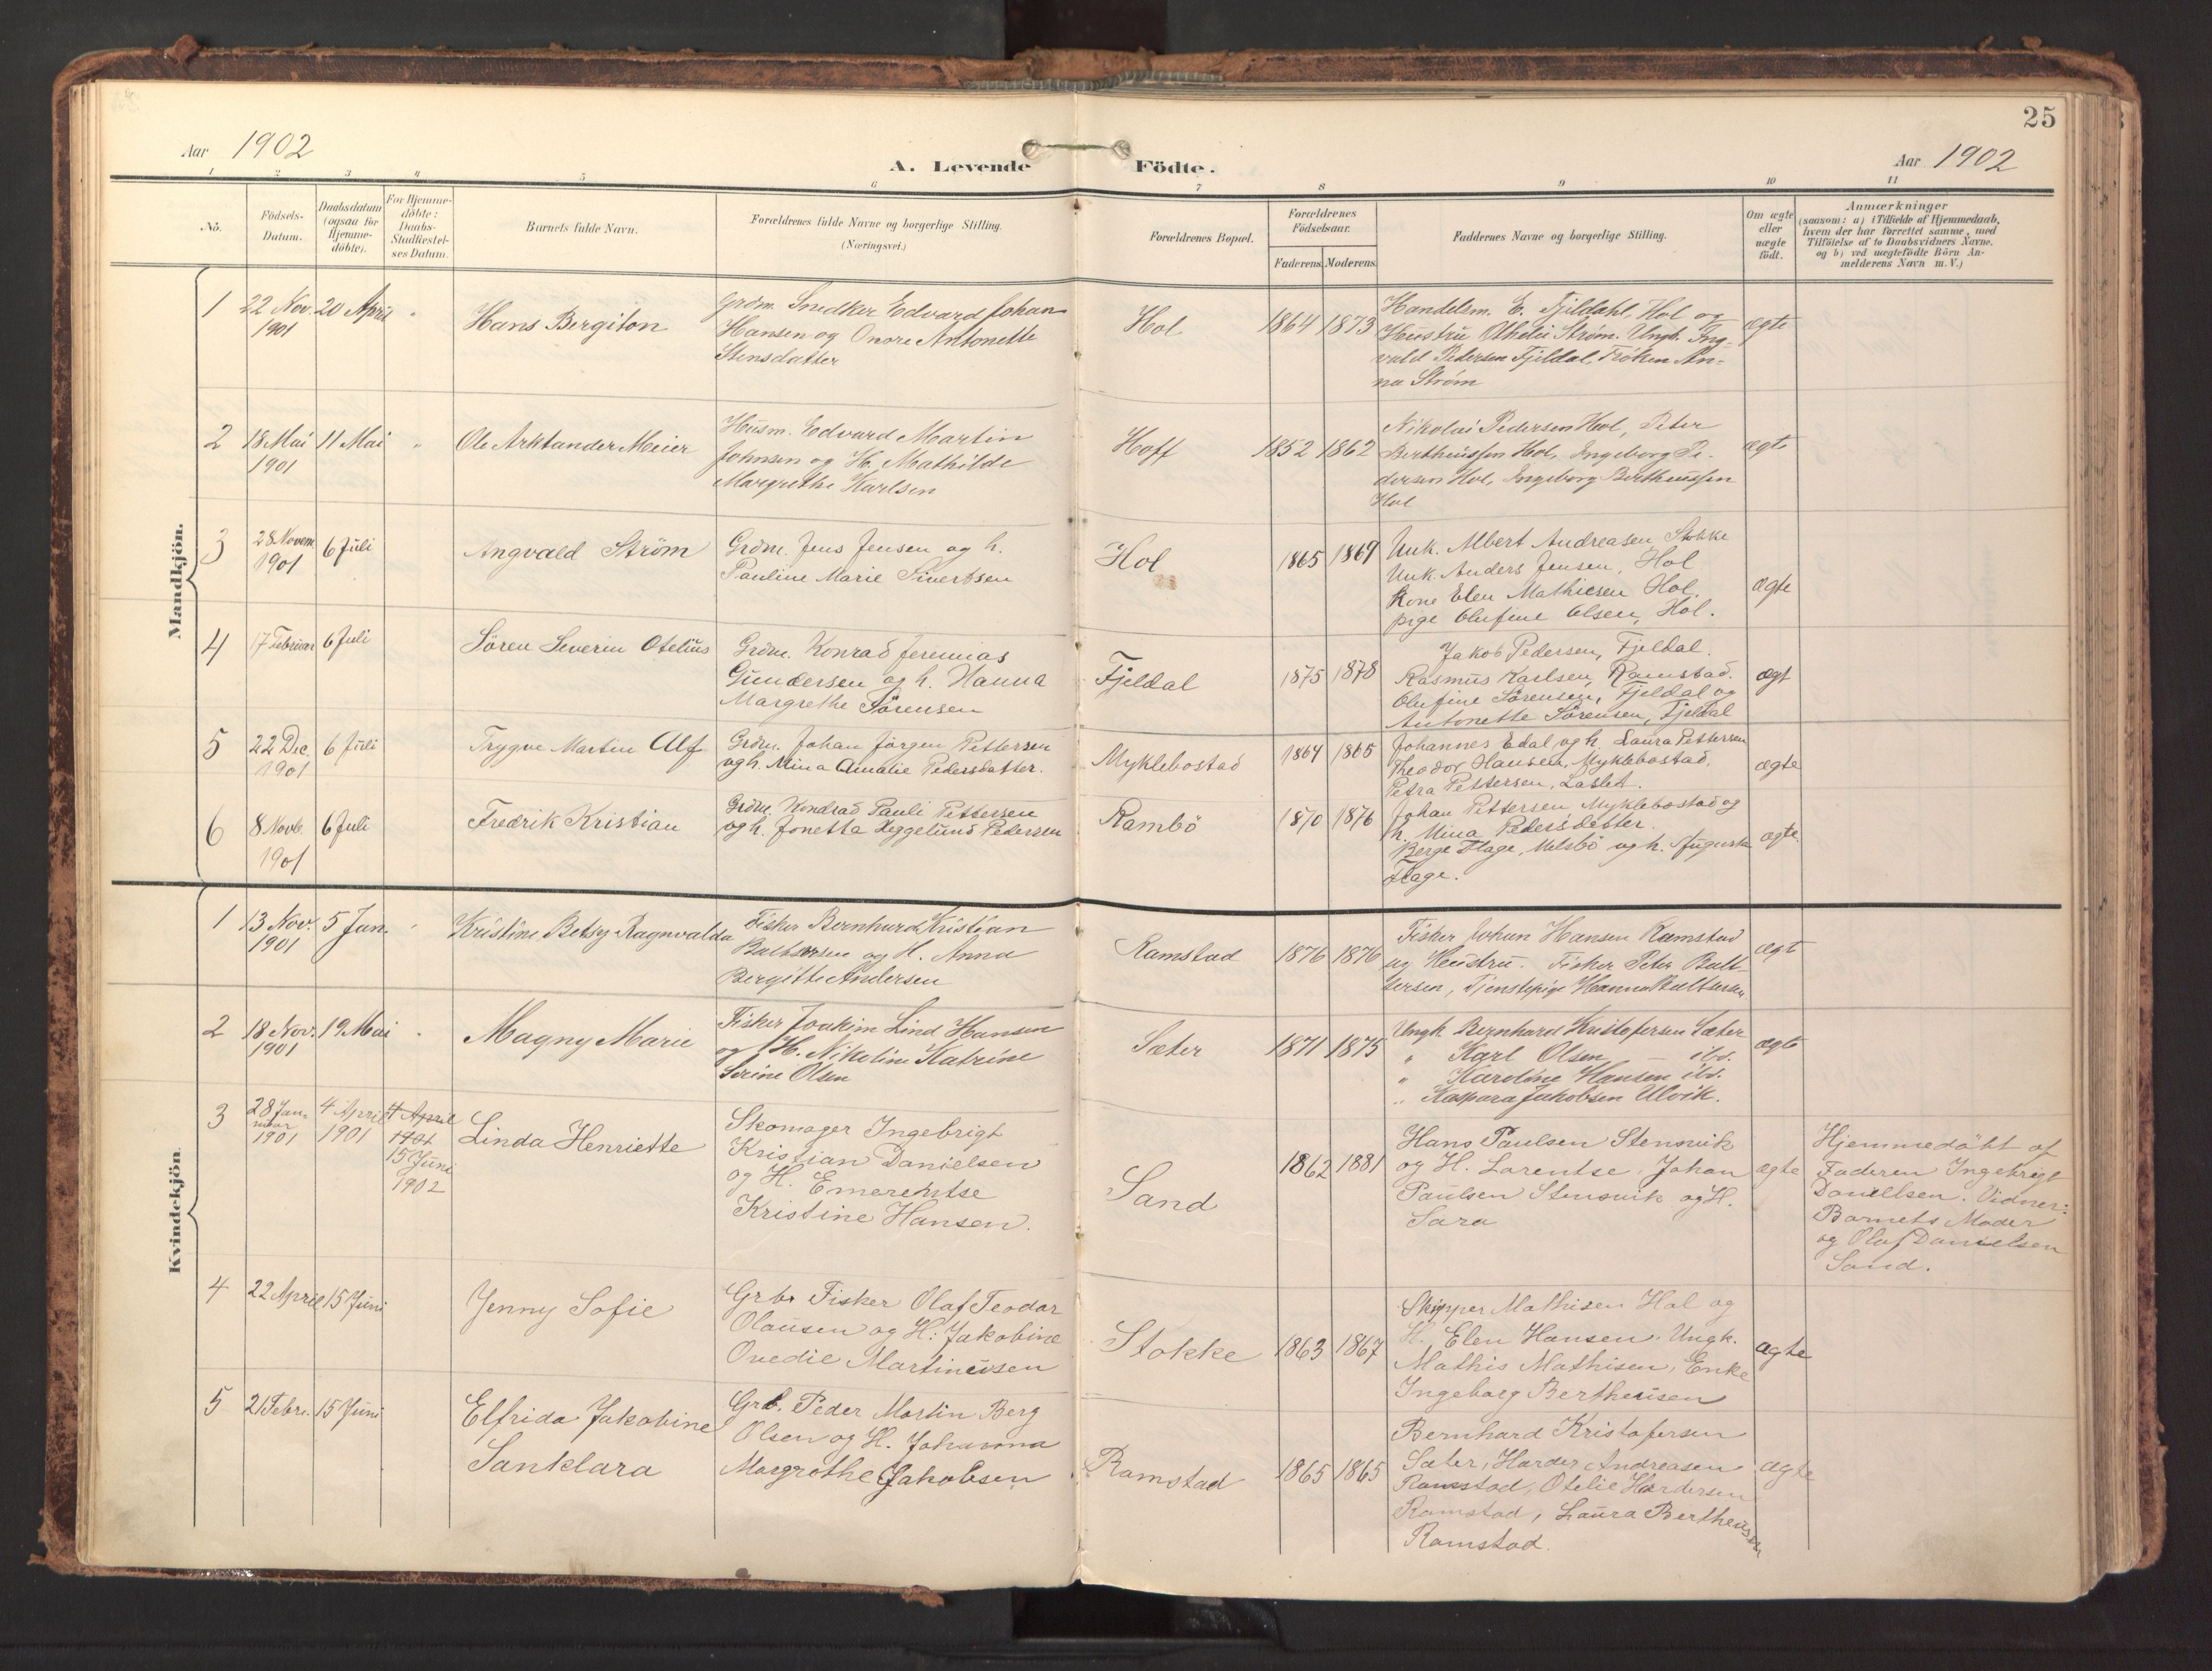 25
Aar 1902
A. Levende Födte.
Aar 1902
1 2 3 4 5 6 7 8 9 10 11
No.
Födsels-
Datum.
Daabsdatum
(ogsaa for
Hjemme-
döbte).
For Hjemme-
döbte:
Daabs-
Stadfæstel-
ses Datum.
Barnets fulde Navn.
Forældrenes fulde Navne og borgerlige Stilling.
(Næringsvei.)
Forældrenes Bopæl.
Forældrenes
Födselsaar.
Faderens. Moderens.
Faddernes Navne og borgerlige Stilling.
Om ægte
eller
uægte
födt.
Anmærkninger
(saasom: a) i Tilfælde af Hjemmedaab,
hvem der har forrettet samme, med
Tilföielse af to Daabsvidners Navne,
og b) ved uægtefödte Börn An-
melderens Navn m. V.)
Mandkjön.
1
22 Nov.
1901
20 April
Hans Bergiton
Grdm. Snedker Edvard Johan
Hansen og Onore Antonette
Stensdatter
Hol
1864 1873
Handelsm. E. Fjeldahl, Hol og
Hustru Othelie Strøm. Ungk. Ing-
vald Pedersen Fjeldal, Frøken An-
na Strøm
ægte
2
18 Mai
1901
11 Mai
Ole Arktander Meier
Husm. Edvard Martin
Johnsen og H. Mathilde
Margrethe Karlsen
Hoff
1852 1862
Nikolai Pedersen Hol, Peter
Bertheussen Hol, Ingeborg Pe-
dersen Hol, Ingeborg Bertheussen
Hol
ægte
3
28 Novem
1901
6 Juli
Angvald Ström
Grdm. Jens Jensen og h.
Pauline Marie Sivertsen
Hol
1865 1869
Unk. Albert Andreasen Stokke
Unk. Anders Jensen, Hol
Kone Elen Mathiesen Hol.
pige Olufine Olsen, Hol.
ægte
4
17 Februar
6 Juli
Sören Severin Otelius
Grdm. Konrad Jeremias
Gundersen og h. Hanna
Margrethe Sörensen
Fjeldal
1875 1878
Jakob Pedersen, Fjeldal.
Rasmus Karlsen, Ramstad.
Olufine Sörensen, Fjeldal og
Antonette Sörensen, Fjeldal
ægt
5
22 Dec.
1901
6 Juli
Trygve Martin Alf
Grdm. Johan Jörgen Pettersen
og h. Mina Amalie Pedersdatter.
Myklebostad
1864 1865
Johannes Edal og h. Laura Pettersen
Theodor Hansen, Myklebostad,
Petra Pettersen, Laslet.
ægte
6
8 Novb.
1901
6 Juli
Fredrik Kristian
Grdm. Kondrad Pauli Pettersen
og h. Jonetta Heggelund Pedersen
Rambö
1870 1876
Johan Pettersen Myklebostad og
h. Mina Pedersdatter.
Berge Flage, Melsbö og h. Augusta
Flage.
ægte.
Kvindekjön.
1
13 Nov.
1901
5 Jan.
Kristine Betsy Ragnvalda
Fisker Bernhard Kristian
Baltsersen og H. Anna
Bergitte Andersen
Ramstad
1876 1876
Fisker Johan Hansen Ramstad
og Hustru. Fisker Peter Balt-
sersen, Tjenstepige Hanna Baltsersen
ægt
2
18 Nov.
1901
19 Mai
Magny Marie
Fisker Joakim Lind Hansen
og H. Nikoline Katrine
Serine Olsen
Sæter
1871 1875
Ungk. Bernhard Kristofersen Sæter
" Karl Olsen — ibs.
" Karoline Hansen ibs.
" Kaspara Jakobsen Ulvik.
ægte
3
28 Jan-
nuar
1901
4 April
1901
4 April
1901
15 Juni
1902
Linda Henriette
Skomager Ingebrigt
Kristian Danielsen
og H. Emerentse
Kristine Hansen.
Sand
1862 1881
Hans Paulsen Stensvik
og H. Lorentse, Johan
Paulsen Stensvik og H.
Sara
ægte
Hjemmedöbt af
Faderen Ingebrigt
Daniellsen. Vidner:
Barnets Moder
og Olaf Danielsen
Sand.
4
22 April
15 Juni
Jenny Sofie
Grbr Fisker Olaf Teodor
Olausen og H. Jakobine
Ovedie Martineusen
Stokke
1863 1867
Skipper Mathisen Hol og
H. Elen Hansen. Ungk.
Mathis Mathisen, Enke
Ingeborg Bertheusen
ægte
5
21 Febr.
15 Juni
Elfrida Jakobine
Sanklara
Grb. Peder Martin Berg
Olsen og H. Johanna
Margrethe Jakobsen
Ramstad
1865 1865
Bernhard Kristofersen
Sæter, Harder Andreasen
Ramstad, Otelie Hardersen
Ramstad, Laura Bertheusen
Ramstad.
ægte